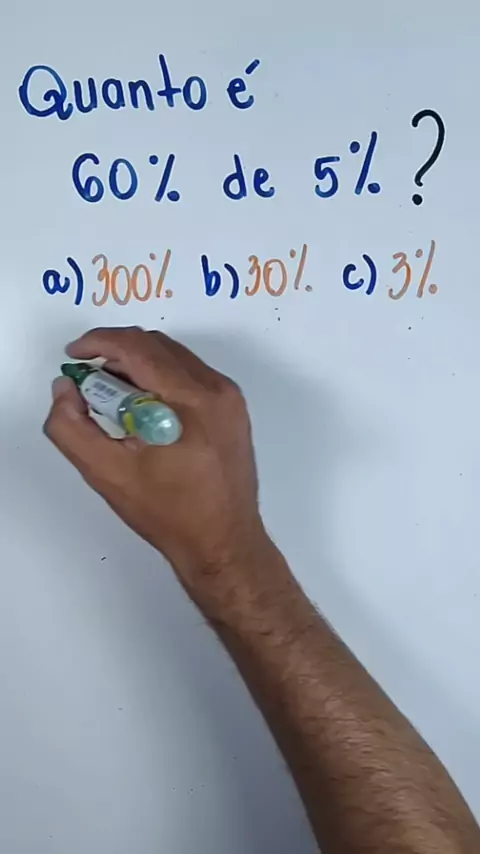 Quanto é
60% de 5%?
a) 300% b) 30% c) 3%